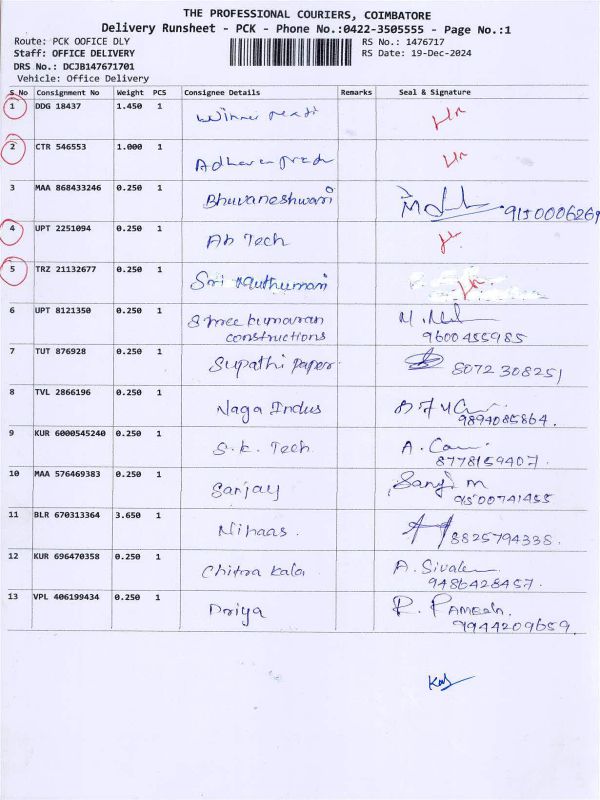 THE PROFESSIONAL COURIERS, COIMBATORE
Delivery Runsheet - PCK - Phone No.:0422-3505555 - Page No.:1
Route: PCK OOFICE DLY
RS No.: 1476717
Staff: OFFICE DELIVERY
RS Date: 19-Dec-2024
DRS No.: DCJB147671701
Vehicle: Office Delivery
S No Consignment No Weight PCS Consignee Details Remarks Seal & Signature
1 DDG 18437 1.450 1 Winner
2 CTR 546553 1.000 1
3 MAA 868433246 0.250 1 Bhuvaneshwari
4 UPT 2251094 0.250 1 Ab Tech
5 TRZ 21132677 0.250 1 Sri Muthumari
6 UPT 8121350 0.250 1 Shree kumaran
constructions 9600455985
7 TUT 876928 0.250 1 Supathi Paper 8072308251
8 TVL 2866196 0.250 1 Naga Indus
9894085864.
9 KUR 6000545240 0.250 1 S.K. Tech.
8778159407.
10 MAA 576469383 0.250 1 Sanjay
9500741455
11 BLR 670313364 3.650 1 Nihaas. 8825794338.
12 KUR 696470358 0.250 1 Chitra Kala A. Sivalem
9486428457.
13 VPL 406199434 0.250 1 Priya R. Ramesh.
9944209659.